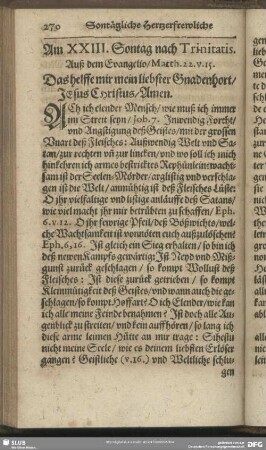 270 Sontägliche Hertzerfrewliche
Am XXIII. Sontag nach Trinitatis.
Auß dem Evangelio/ Matth. 22. v. 15.
Das helffe mir mein liebster Gnadenhort/
JEsus Christus/ Amen.
ACh ich elender Mensch/ wie muß ich immer
im Streit seyn/ Job. 7. Inwendig Forcht/
und Aengstigung deß Geistes/ mit der grossen
Unart deß Fleisches: Außwendig Welt und Sa-
tan/ zur rechten vñ zur lincken/ und wo soll ich mich
hinkehren ich armes bestricktes Rephünlein? wach-
sam ist der Seelen-Mörder/ arglistig und verschla-
gen ist die Welt/ anmühtig ist deß Fleisches Lüste:
O ihr vielfaltige und listige anläuffe deß Satans/
wie viel macht ihr mir betrübten zu schaffen/ Eph.
6. v. 12. O ihr fewrige Pfeil deß Bößwichts/ wel-
che Wachtsamkeit ist vonnöten euch außzulöschen?
Eph. 6, 16. Ist gleich ein Sieg erhalten/ so bin ich
deß newen Kampfs gewärtig: Ist Neyd und Miß-
gunst zurück geschlagen/ so kompt Wollust deß
Fleisches: Ist diese zurück getrieben/ so kompt
Kleinmütigkeit deß Geistes/ und wann auch die ge-
schlagen/ so kompt Hoffart: O ich Elender/ wie kan
ich alle meine Feinde benahmen? Ist doch alle Au-
genblick zu streiten/ und kein auffhören/ so lang ich
diese arme leimen Hütte an mir trage: Sihestu
nicht meine Seele/ wie es deinem liebsten Erlöser
gangen? Geistliche (v. 16.) und Weltliche schlu-
gen
SLUB